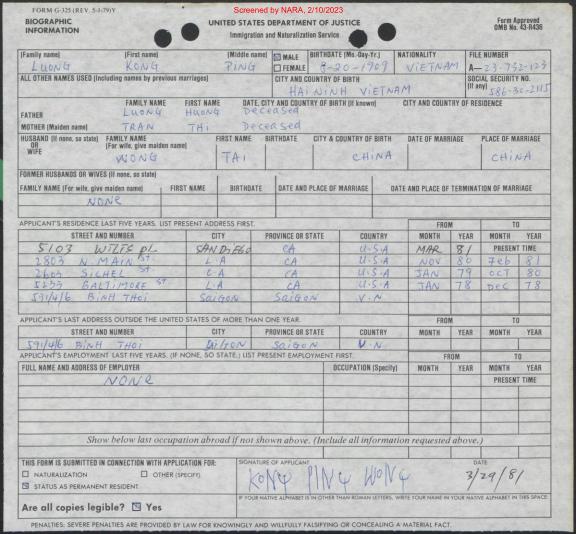 Screened by NARA, 2/10/2023
FORM G-325 (REV. 5-1-79)Y
BIOGRAPHIC INFORMATION
UNITED STATES DEPARTMENT OF JUSTICE
Immigration and Naturalization Service
Form Approved
OMB No. 43-R436
(Family name) (First name) (Middle name) MALE FEMALE BIRTHDATE (Mo.-Day-Yr.) NATIONALITY FILE NUMBER
LUONG KONG PING 8-20-1909 VIETNAM A-23-752-123
ALL OTHER NAMES USED (Including names by previous marriages) CITY AND COUNTRY OF BIRTH SOCIAL SECURITY NO. (If any)
HAI NINH VIETNAM 586-30-2115
FAMILY NAME FIRST NAME DATE, CITY AND COUNTRY OF BIRTH (If known) CITY AND COUNTRY OF RESIDENCE
FATHER LUONG HUONG Deceased
MOTHER (Maiden name) TRAN THI Deceased
HUSBAND (If none, so state) OR WIFE FAMILY NAME (For wife, give maiden name) FIRST NAME BIRTHDATE CITY & COUNTRY OF BIRTH DATE OF MARRIAGE PLACE OF MARRIAGE
WONG TAI CHINA CHINA
FORMER HUSBANDS OR WIVES (If none, so state)
FAMILY NAME (For wife, give maiden name) FIRST NAME BIRTHDATE DATE AND PLACE OF MARRIAGE DATE AND PLACE OF TERMINATION OF MARRIAGE
NONE
APPLICANT'S RESIDENCE LAST FIVE YEARS. LIST PRESENT ADDRESS FIRST. FROM TO
STREET AND NUMBER CITY PROVINCE OR STATE COUNTRY MONTH YEAR MONTH YEAR
5103 WILTS PL SAN DIEGO CA U.S.A MAR 81 PRESENT TIME
2803 N MAIN ST. L.A CA U.S.A NOV 80 Feb 81
2603 SICHEL ST L.A CA U.S.A JAN 79 OCT 80
5233 BALTIMORE ST L.A CA U.S.A JAN 78 Dec 78
591/4/6 BINH THOI SAIGON SAIGON V.N
APPLICANT'S LAST ADDRESS OUTSIDE THE UNITED STATES OF MORE THAN ONE YEAR. FROM TO
STREET AND NUMBER CITY PROVINCE OR STATE COUNTRY MONTH YEAR MONTH YEAR
591/4/6 BINH THOI SAIGON SAIGON V.N
APPLICANT'S EMPLOYMENT LAST FIVE YEARS. (IF NONE, SO STATE.) LIST PRESENT EMPLOYMENT FIRST. FROM TO
FULL NAME AND ADDRESS OF EMPLOYER OCCUPATION (Specify) MONTH YEAR MONTH YEAR
NONE PRESENT TIME
Show below last occupation abroad if not shown above. (Include all information requested above.)
THIS FORM IS SUBMITTED IN CONNECTION WITH APPLICATION FOR: SIGNATURE OF APPLICANT DATE
NATURALIZATION OTHER (SPECIFY)
STATUS AS PERMANENT RESIDENT
KONG PING WONG 3/29/81
Are all copies legible? Yes
IF YOUR NATIVE ALPHABET IS IN OTHER THAN ROMAN LETTERS, WRITE YOUR NAME IN YOUR NATIVE ALPHABET IN THIS SPACE
PENALTIES: SEVERE PENALTIES ARE PROVIDED BY LAW FOR KNOWINGLY AND WILLFULLY FALSIFYING OR CONCEALING A MATERIAL FACT.